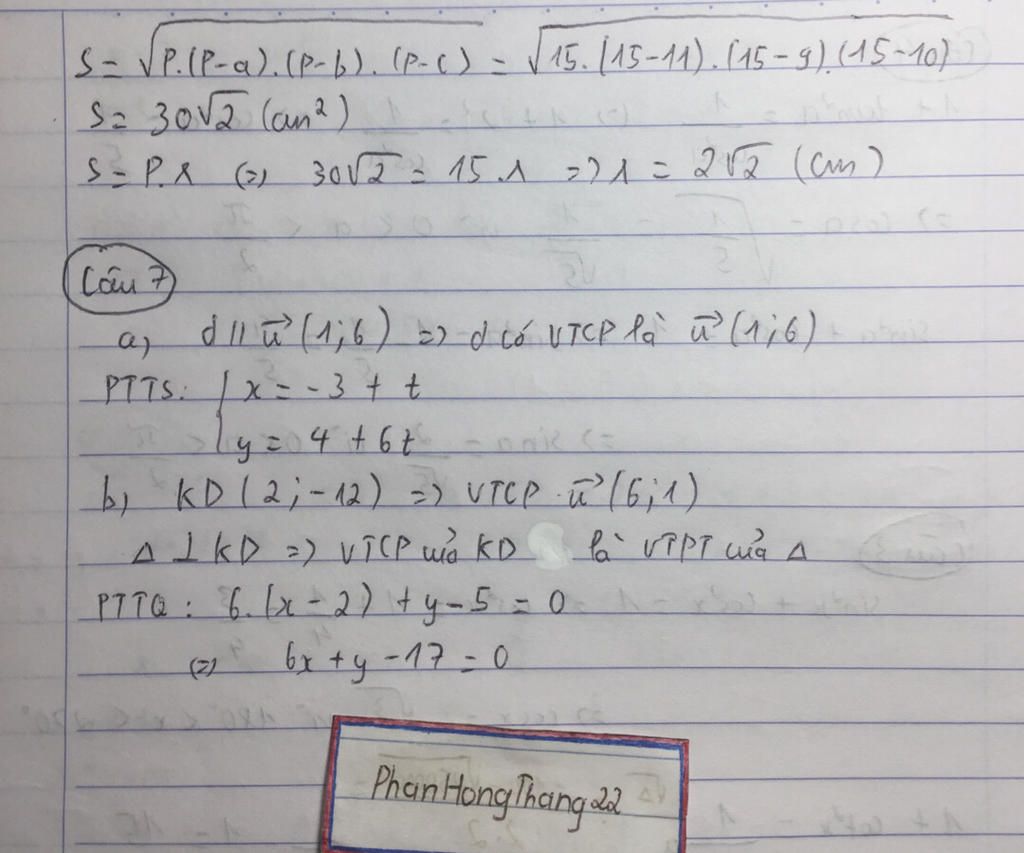 S = √P.(P-a).(P-b).(P-c) = √15.(15-11).(15-9).(15-10)
S = 30√2 (cm²)
S = P.r (=) 30√2 = 15.r => r = 2√2 (cm)
Câu 7
a, d // u⃗ (1;6) => d có VTCP là u⃗ (1;6)
PTTS: { x = -3 + t
y = 4 + 6t
b, KD (2;-12) => VTCP u⃗ (6;1)
Δ ⊥ KD => VTCP của KD là VTPT của Δ
PTTQ: 6.(x-2) + y-5 = 0
(=) 6x + y - 17 = 0
PhanHongThang22